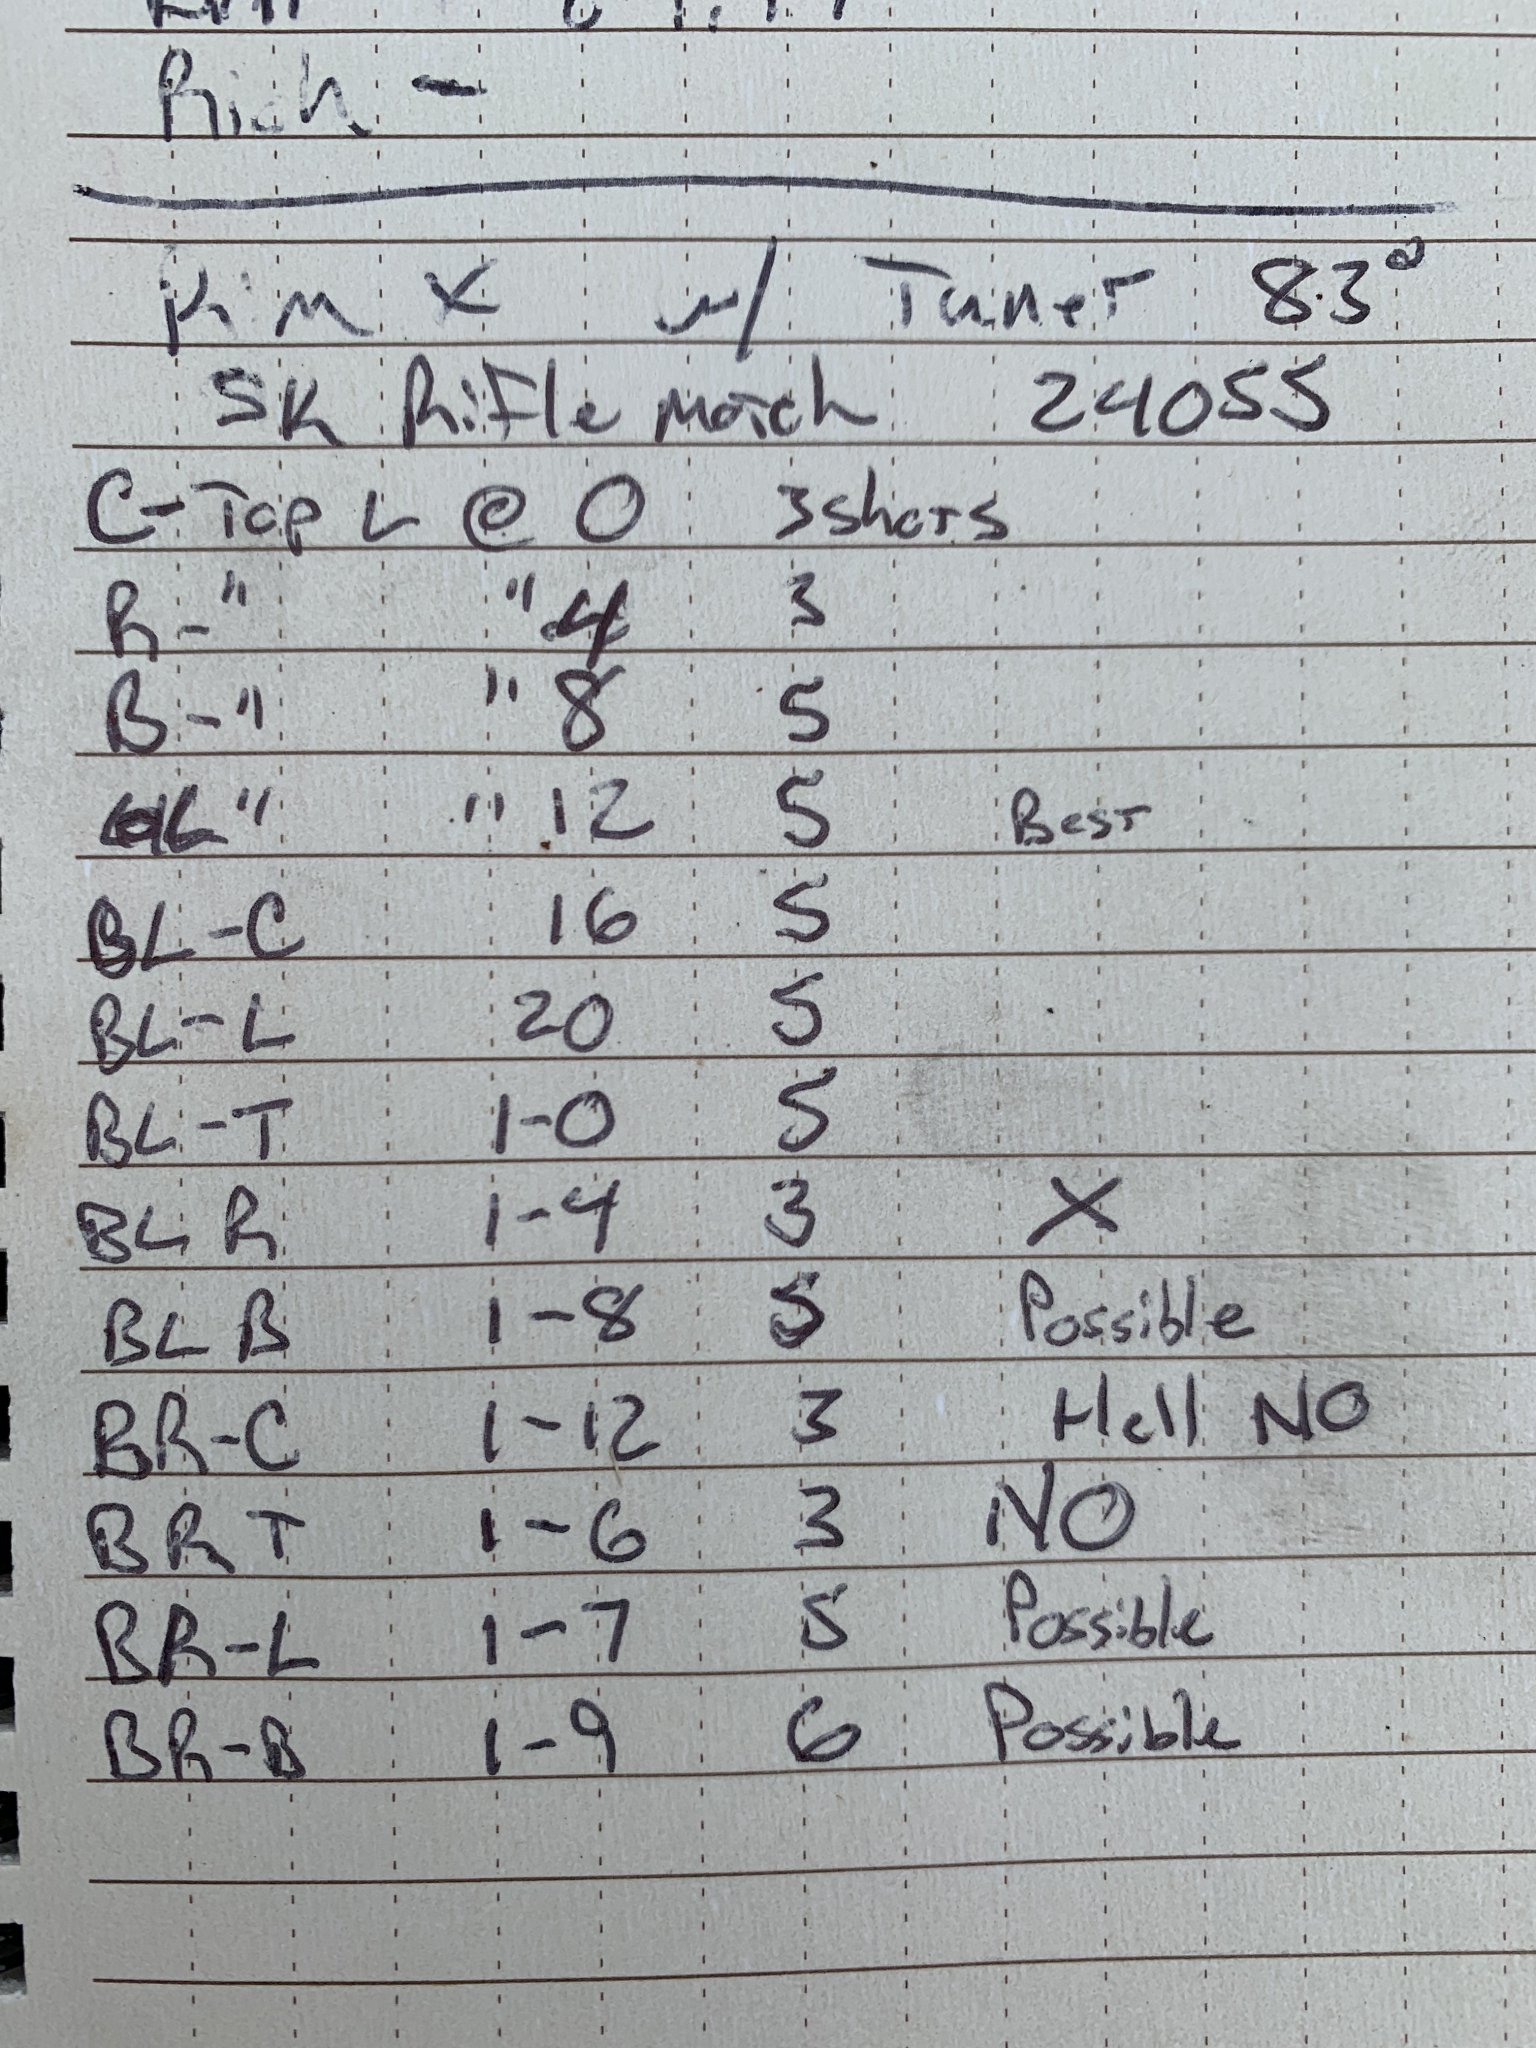 Rich -
Rim X w/ Tuner 83°
SK Rifle Match 24055
C-Top L @ 0 3 shots
R-" " 4 3
B-" " 8 5
L " " 12 5 Best
BL-C 16 5
BL-L 20 5
BL-T 1-0 5
BL R 1-4 3 X
BL B 1-8 5 Possible
BR-C 1-12 3 Hell NO
BR T 1-6 3 NO
BR-L 1-7 5 Possible
BR-B 1-9 6 Possible